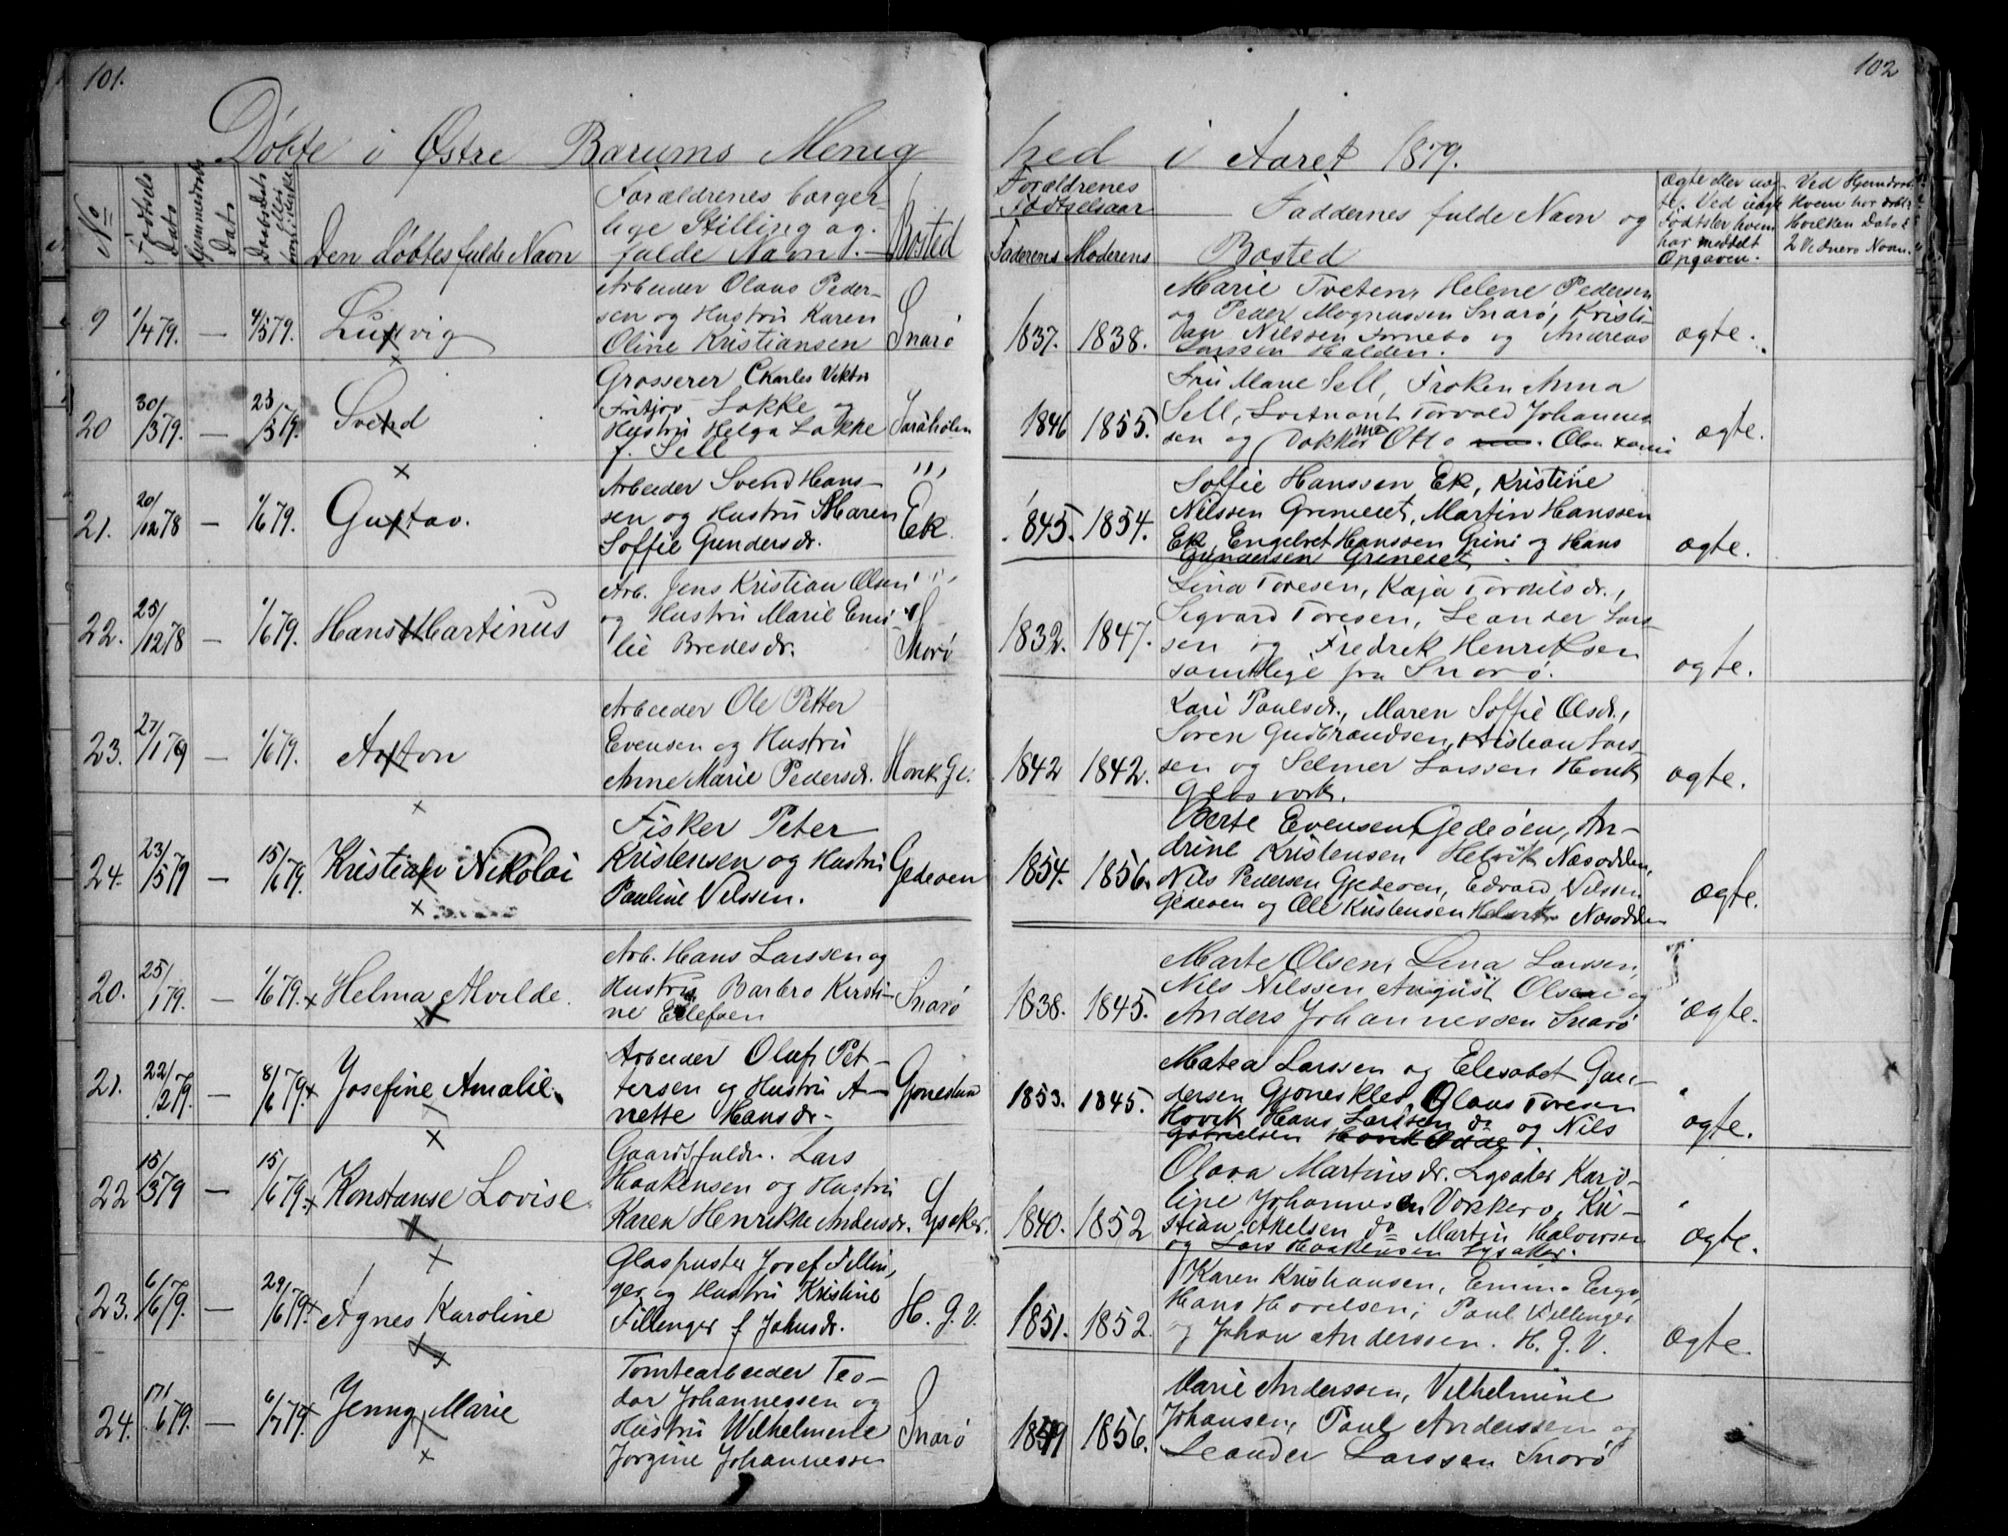 101.
102
Döbte i Østre Bærums Menig
hed i Aaret 1879.
No
Födtsels Dato
Hjemmedaabs Dato
Daabsdato eller
Den döbtes fulde Navn
Forældrenes borger-
lige Stilling og
fulde Navn.
Bosted
Forældrenes
Födtselsaar
Faderens Moderens
Faddernes fulde Navn og
Bosted
Ægte eller uæg-
te. Ved uægte
Födtsler hvem
har meddelt
Opgaven.
Ved Hjemdaab
Hvem har döbt
Hvilken Dato &
2 Vidners Navn.
9 1/4 79. — 4/5 79. Ludvig
Arbeider Olaus Peder-
sen og Hustru Karen
Oline Kristiansen
Snarö
1837. 1838.
Marie Tveten, Helene Pedersen
og Peder Mognussen Snarö, Kristi-
an Nilssen Fornebo og Andreas
Larssen Halden.
ægte.
20 30/3 79. — 23/5 79. Svend
Grosserer Charles Viktor
Fritjov Lökke og
Hustru Helga Lökke
f. Sell
Saraholm
1846 1855.
Fru Marie Sell, Fröken Anna
Sell, Loitnant Torvald Johannes-
sen og Doktor Otto Olsen
ægte.
21. 20/12 78 — 1/6 79. Gustav.
Arbeider Svend Hans-
sen og Hustru Maren
Soffie Gundersdr.
Ek.
1845. 1854.
Soffie Hanssen Ek, Kristine
Nilssen Grineiet, Martin Hanssen
Ek, Engebret Hanssen Grini og Hans
Gundersen Grineiet.
ægte.
22. 25/12 78 — 1/6 79. Hans Martinus
Arb. Jens Kristian Olsen
og Hustru Marie Emi-
lie Bredesdr.
Snarö
1832. 1847.
Lina Toresen, Kaja Tordilsdr.,
Sigvard Toresen, Leander Lars-
sen og Fredrek Henriksen
samtlige fra Snarö.
ægte.
23. 27/1 79 — 1/6 79. Anton
Arbeider Ole Petter
Evensen og Hustru
Anne Marie Pedersdr.
Hövik Gl.
1842 1842.
Kari Paulsdr., Maren Soffie Olsdr.,
Sören Gudbrandsen, Kristian Lars-
sen og Selmer Larssen Hövik
Glasværk.
ægte.
24. 23/5 79 — 15/6 79. Kristian Nikolai
Fisker Peter
Kristensen og Hustru
Pauline Nilssen.
Gedeöen
1854. 1856.
Berte Evensen Gedeöen, An-
drine Kristensen Helvik Næsodden,
Nils Pedersen Gjedeöen, Edvard Nilssen
Gedeöen og Ole Kristensen Helvik Næsodden
ægte.
20. 25/1 79. — 1/6 79. Helma Alvilde.
Arb. Hans Larssen og
Hustru Barbro Kirsti-
ne Ellefsen
Snarö
1838. 1845.
Marte Olsen, Lina Larssen,
Nils Nilssen August Olsen og
Anders Johannessen Snarö
ægte.
21. 22/2 79. — 8/6 79. Josefine Amalie.
Arbeider Oluf Pet-
tersen og Hustru A-
nette Hansdr.
1853. 1845.
Matea Larssen og Elesabet Gun-
dersen Gjöneskleo, Olaus Toresen
Hövik Hans Larssen do og Nils
Gabrielsen Hövik Odde.
ægte.
22 15/3 79 — 15/6 79. Konstanse Lovise
Gaardsfuldm. Lars
Haakensen og Hustru
Karen Henrikke Andersdr.
Lysaker.
1840. 1852
Olava Martinsdr. Lysaker Karo-
line Johannesen Vækkerö, Kri-
stian Akelsen do Martin Halvorsen
og Lars Haakensen Lysaker.
ægte.
23. 6/6 79. — 29/6 79. Agnes Karoline
Glaspuster Josef Fillin-
ger og Hustru Kristine
Fillinger f. Johnsdr.
H. G. V.
1851. 1852.
Karen Kristiansen, Emma Berg,
Hans Hovelsen, Paul Fillinger
og Johan Anderssen. H. G. V.
ægte.
24. 17/6 79. — 6/7 79. Jenny Marie
Tomtearbeider Teo-
dor Johannessen og
Hustru Wilhelmine
Jörgine Johannessen
Snarö
1849 1856.
Marie Anderssen, Vilhelmine
Johansen, Paul Anderssen og
Leander Larssen Snarö